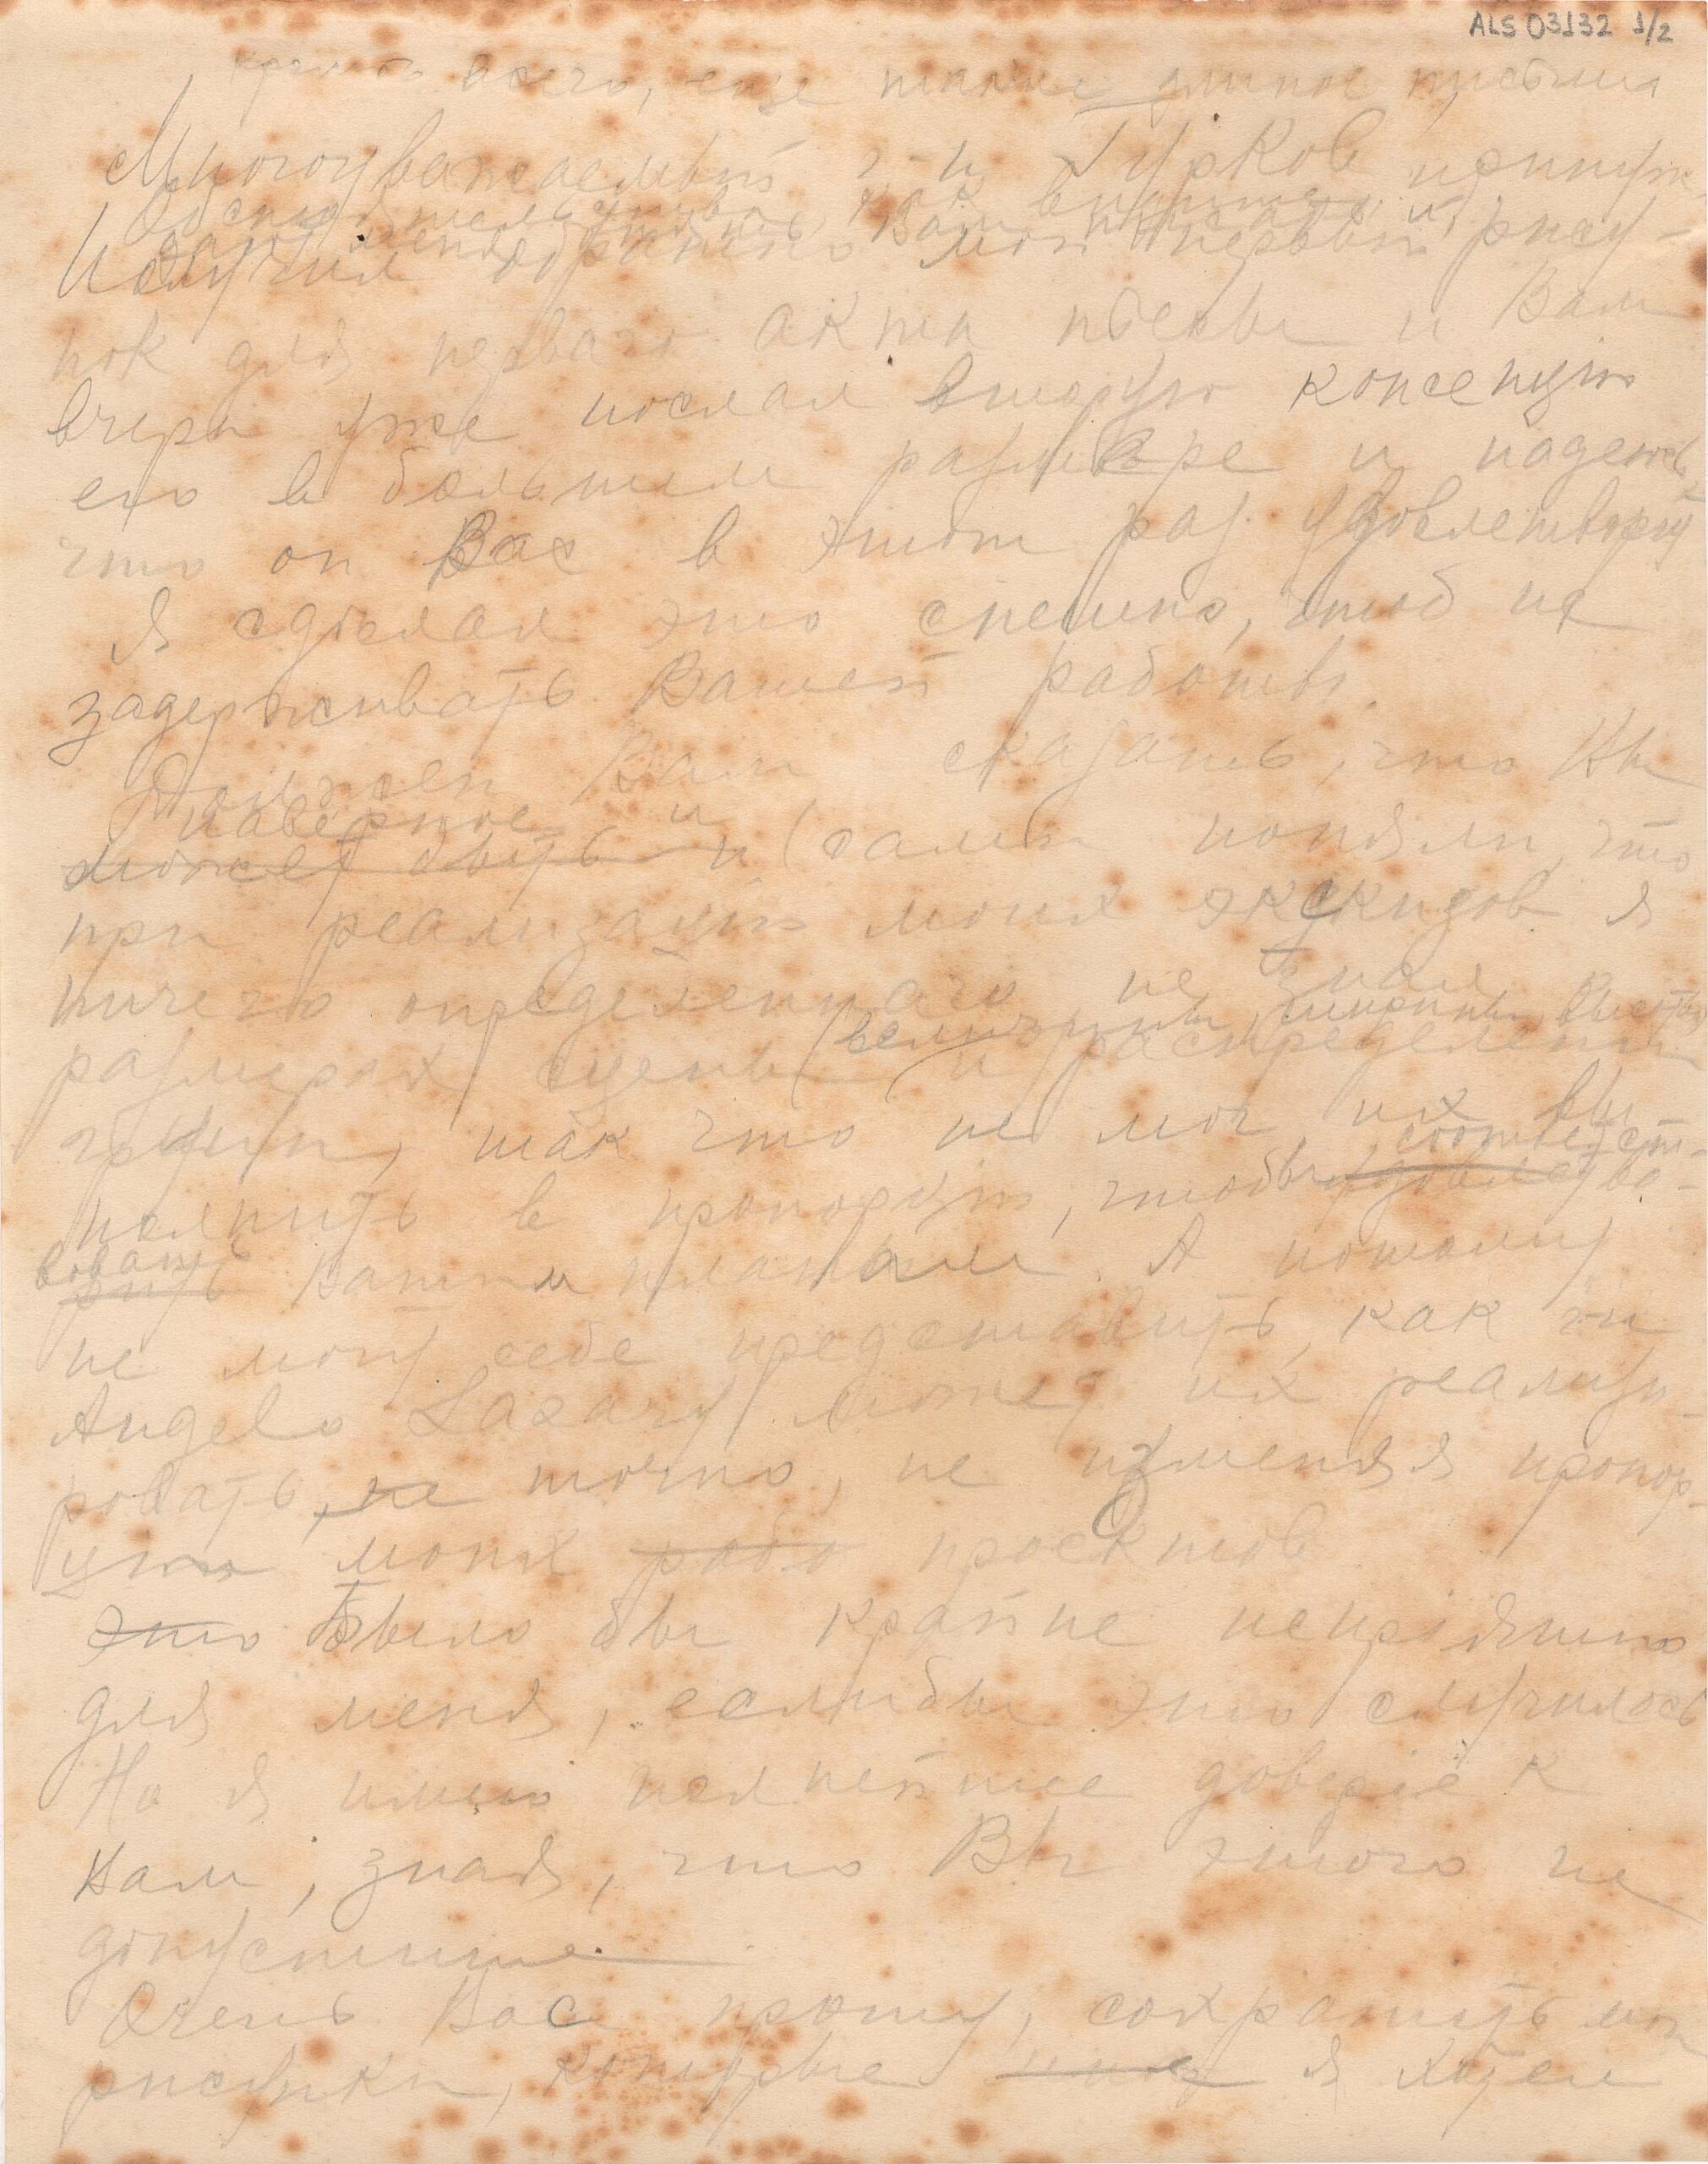 ALS 03132 1/2
всего, еще такие длинное письма
Многоуважаемый г-н Гурков
Обстоятельства как
Получил обратно мой первый рису-
нок для перваго акта пьесы и Вам
вчера уже послал вторую концепцiю
его в большем размере и надеюсь,
что он Вас в этот раз удовлетворит
Я сделал это спешно, чтоб не
задерживать Вашей работы.
Должен Вам сказать, что Вы
наверное и
может быть и сами поняли, что
при реализацiи моих эскизов я
ничего определеннаго не знал
величины, ширины, высоты
размерах сцены и распределенiи
групп, так что не мог их вы-
соответст-
полнить в пропорцiи, чтобы удовлетво-
вовать
рить Вашим планам. А потому
не могу себе представить, как г-н
Angelo Lazary может их реализи-
ровать, не точно, не изменяя пропор-
цiю моих рабо проектов
Это Было бы крайне непрiятно
для меня, еслибы это случилось
Но я имею полнейшее доверiе к
Вам, зная, что Вы этого не
допустите.
Очень Вас прошу, сохранить мои
рисунки, которые я хотел